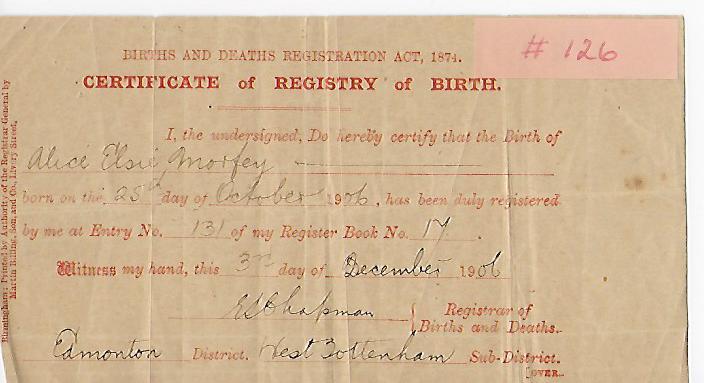 # 126
BIRTHS AND DEATHS REGISTRATION ACT, 1874.
CERTIFICATE of REGISTRY of BIRTH.
I, the undersigned, Do hereby certify that the Birth of
Alice Elsie Morfey
born on the 25th day of October 1906, has been duly registered
by me at Entry No. 131 of my Register Book No. 17.
Witness my hand, this 3rd day of December 1906
E Chapman { Registrar of
Births and Deaths.
Edmonton District. West Tottenham Sub-District.
[OVER.
Birmingham: Printed by Authority of the Registrar General by
Martin Billing, Son, and Co., Livery Street.